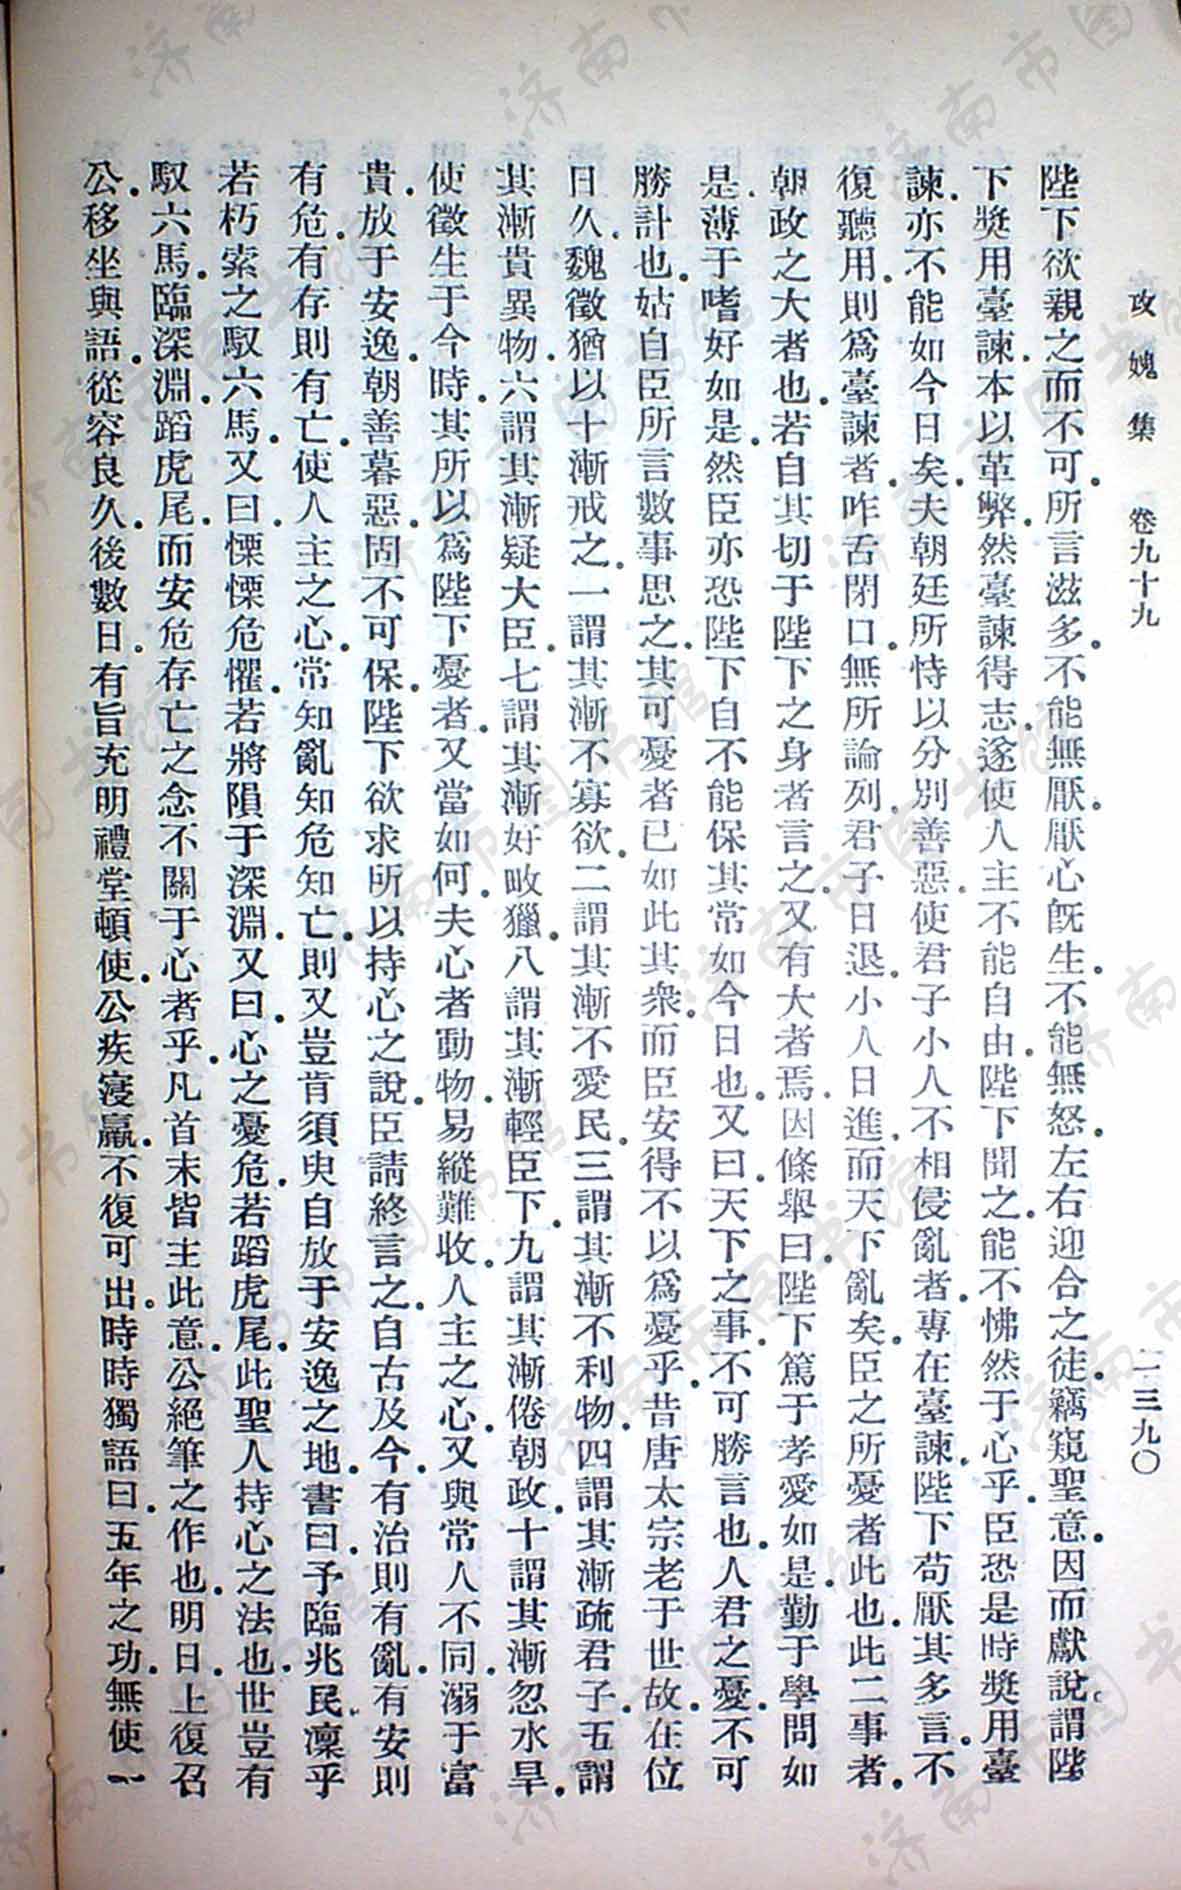 攻媿集　卷九十九　二三九〇
陛下欲親之而不可.所言滋多.不能無厭.厭心既生.不能無怒.左右迎合之徒.竊窺聖意.因而獻說.謂陛
下獎用臺諫.本以革弊.然臺諫得志.遂使人主不能自由.陛下聞之.能不怫然于心乎.臣恐是時獎用臺
諫.亦不能如今日矣.夫朝廷所恃以分別善惡.使君子小人不相侵亂者.專在臺諫.陛下苟厭其多言.不
復聽用.則爲臺諫者.咋舌閉口.無所論列.君子日退.小人日進.而天下亂矣.臣之所憂者此也.此二事者.
朝政之大者也.若自其切于陛下之身者言之.又有大者焉.因條舉曰.陛下篤于孝愛如是.勤于學問如
是.薄于嗜好如是.然臣亦恐陛下自不能保其常如今日也.又曰.天下之事.不可勝言也.人君之憂.不可
勝計也.姑自臣所言數事思之.其可憂者已如此其衆.而臣安得不以爲憂乎.昔唐太宗老于世故.在位
日久.魏徵猶以十漸戒之.一謂其漸不寡欲.二謂其漸不愛民.三謂其漸不利物.四謂其漸疏君子.五謂
其漸貴異物.六謂其漸疑大臣.七謂其漸好畋獵.八謂其漸輕臣下.九謂其漸倦朝政.十謂其漸忽水旱.
使徵生于今時.其所以爲陛下憂者.又當如何.夫心者動物.易縱難收.人主之心.又與常人不同.溺于富
貴.放于安逸.朝善暮惡.固不可保.陛下欲求所以持心之說.臣請終言之.自古及今.有治則有亂.有安則
有危.有存則有亡.使人主之心.常知亂知危知亡.則又豈肯須臾自放于安逸之地.書曰.予臨兆民.凜乎
若朽索之馭六馬.又曰.慄慄危懼.若將隕于深淵.又曰.心之憂危.若蹈虎尾.此聖人持心之法也.世豈有
馭六馬.臨深淵.蹈虎尾.而安危存亡之念不關于心者乎.凡首末皆主此意.公絕筆之作也.明日.上復召
公.移坐與語.從容良久.後數日.有旨充明禮堂頓使.公疾寖羸.不復可出.時時獨語曰.五年之功.無使一